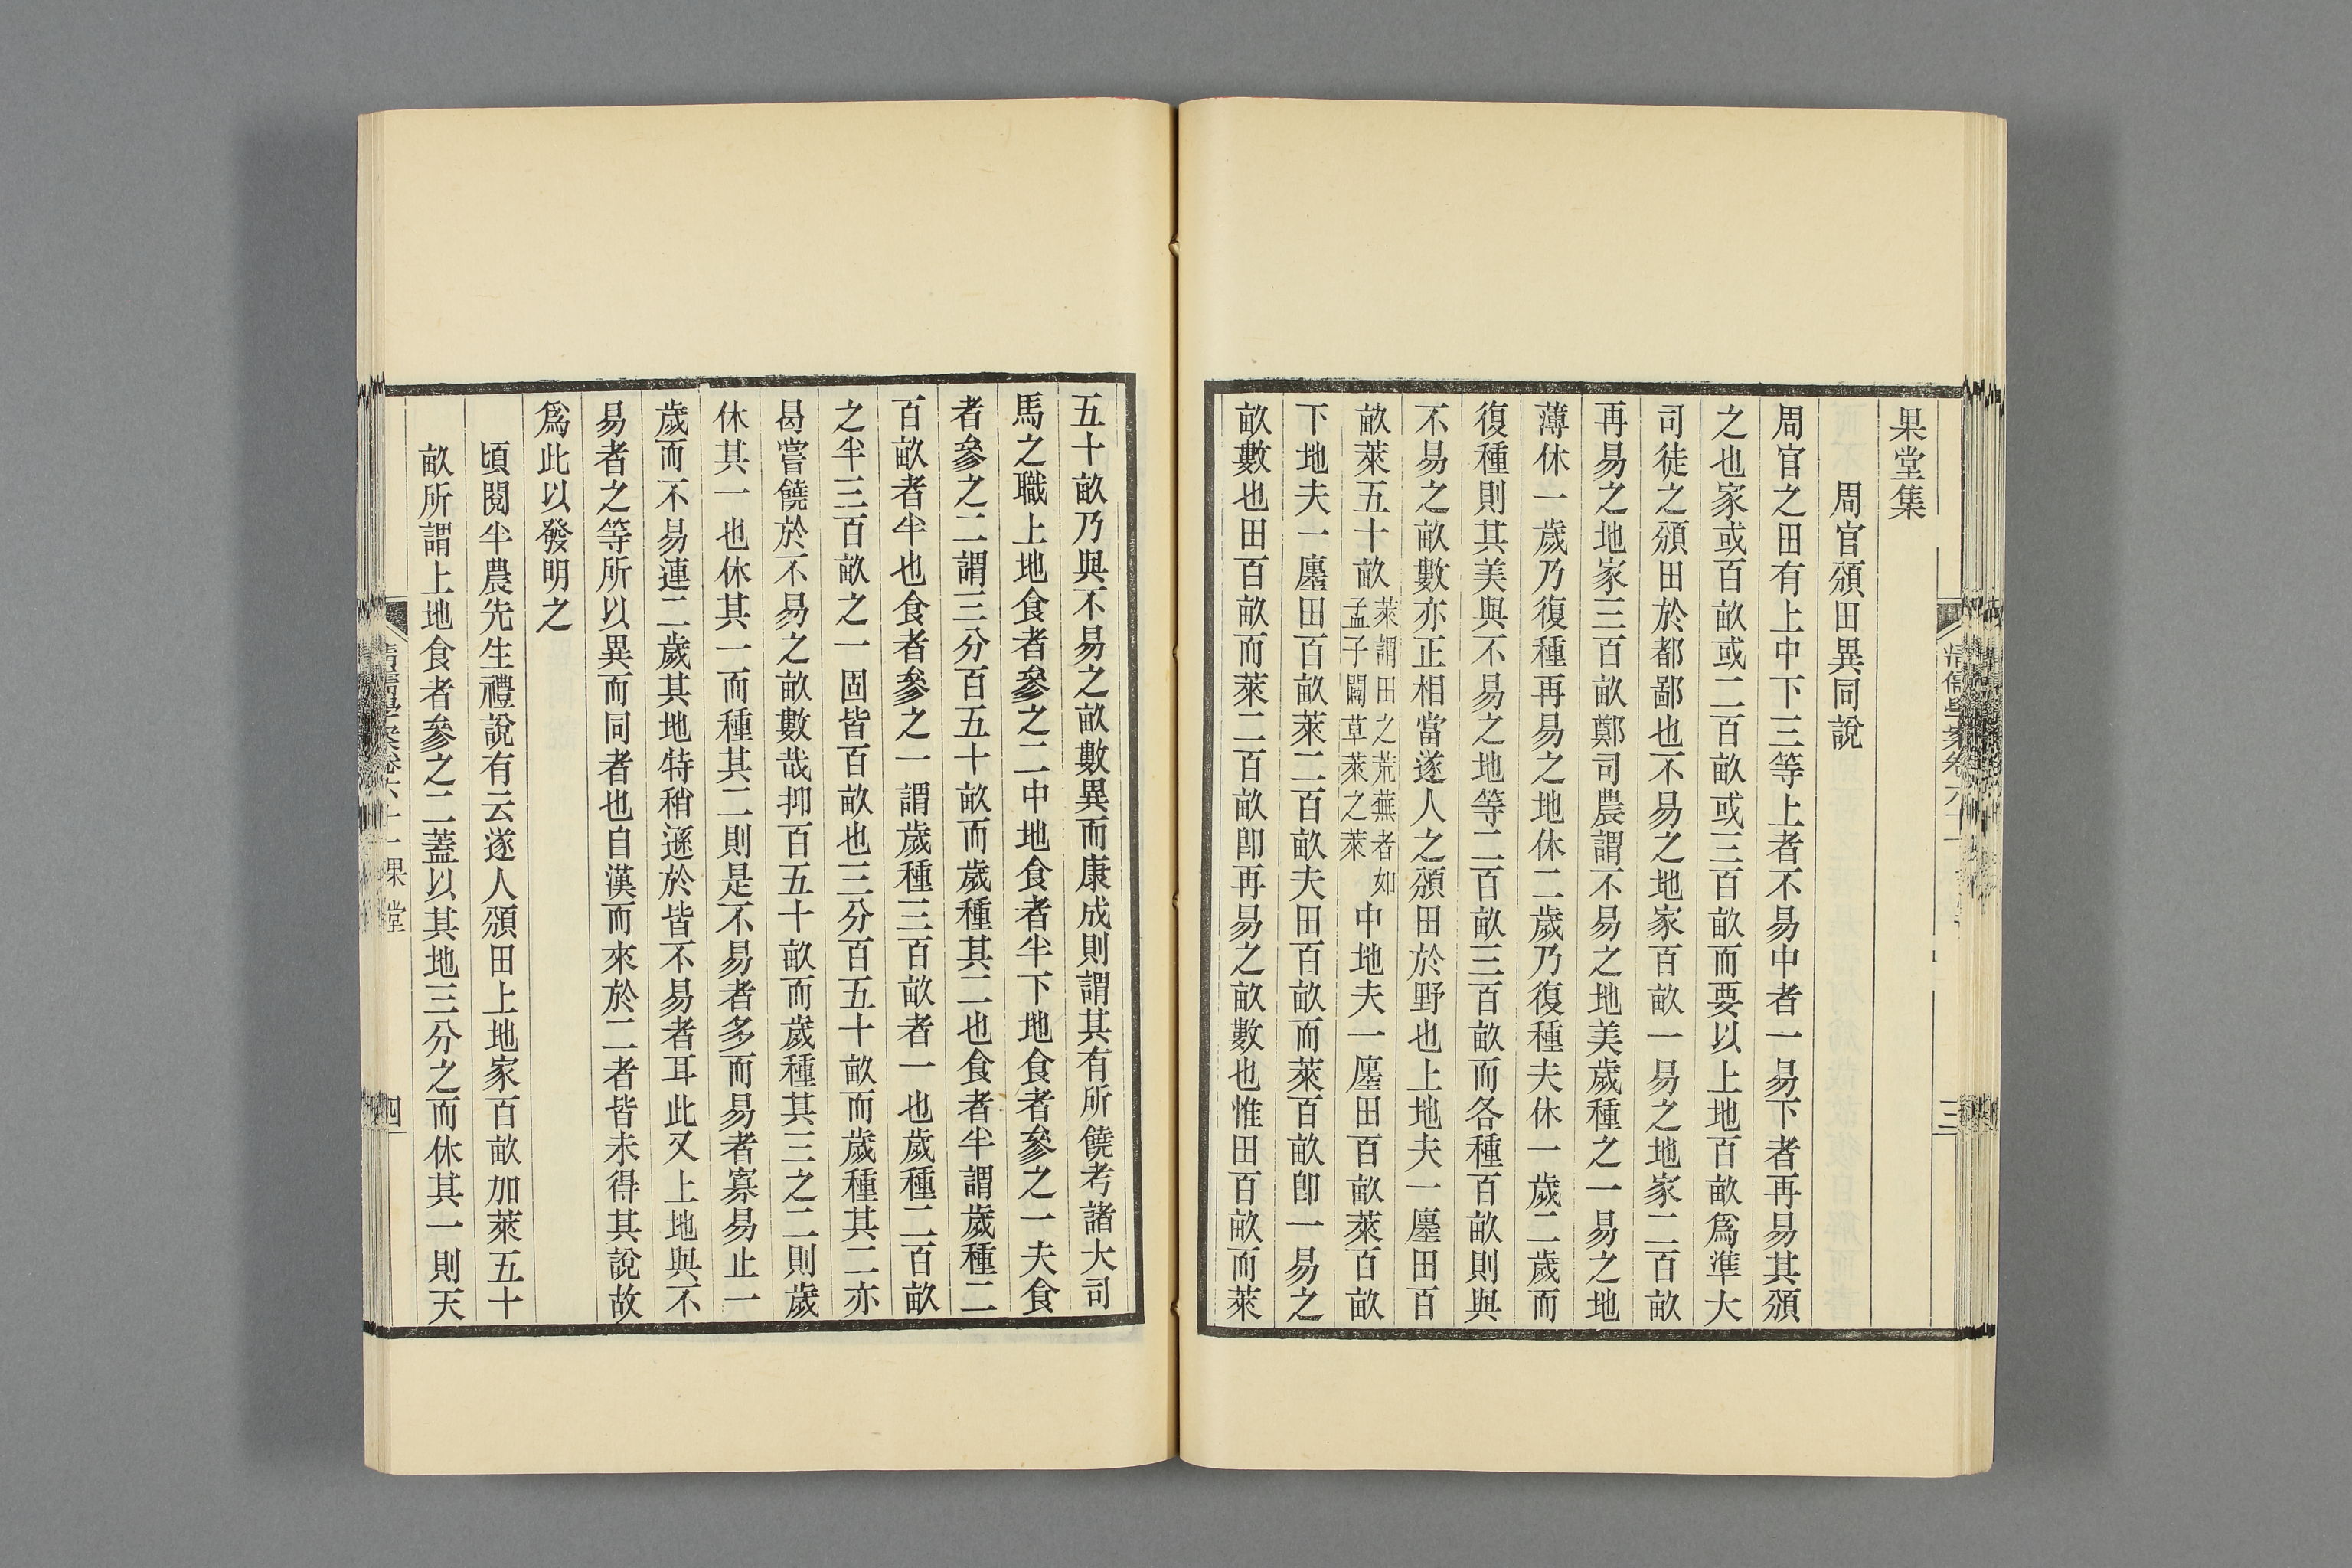 果堂集
周官頒田異同說
周官之田有上中下三等上者不易中者一易下者再易其頒
之也家或百畝或二百畝或三百畝而要以上地百畝爲準大
司徒之頒田於都鄙也不易之地家百畝一易之地家二百畝
再易之地家三百畝鄭司農謂不易之地美歲種之一易之地
薄休一歲乃復種再易之地休二歲乃復種夫休一歲二歲而
復種則其美與不易之地等二百畝三百畝而各種百畝則與
不易之畝數亦正相當遂人之頒田於野也上地夫一廛田百
畝萊五十畝萊謂田之荒蕪者如孟子闢草萊之萊中地夫一廛田百畝萊百畝
下地夫一廛田百畝萊二百畝夫田百畝而萊百畝卽一易之
畝數也田百畝而萊二百畝卽再易之畝數也惟田百畝而萊
五十畝乃與不易之畝數異而康成則謂其有所饒考諸大司
馬之職上地食者參之二中地食者半下地食者參之一夫食
者參之二謂三分百五十畝而歲種其二也食者半謂歲種二
百畝者半也食者參之一謂歲種三百畝者一也歲種二百畝
之半三百畝之一固皆百畝也三分百五十畝而歲種其二亦
曷嘗饒於不易之畝數哉抑百五十畝而歲種其三之二則歲
休其一也休其一而種其二則是不易者多而易者寡易止一
歲而不易連二歲其地特稍遜於皆不易者耳此又上地與不
易者之等所以異而同者也自漢而來於二者皆未得其說故
爲此以發明之
頃閱半農先生禮說有云遂人頒田上地家百畝加萊五十
畝所謂上地食者參之二蓋以其地三分之而休其一則天
果堂
四
三